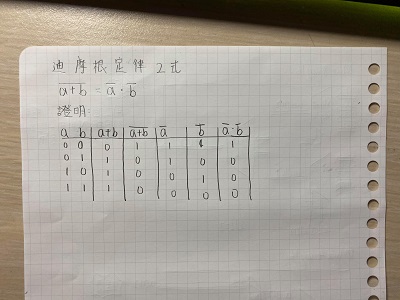 迪摩根定律 2式
a̅+̅b̅ = a̅ · b̅
證明
a b a+b a̅+̅b̅ a̅ b̅ a̅·b̅
0 0 0 1 1 1 1
0 1 1 0 1 0 0
1 0 1 0 0 1 0
1 1 1 0 0 0 0